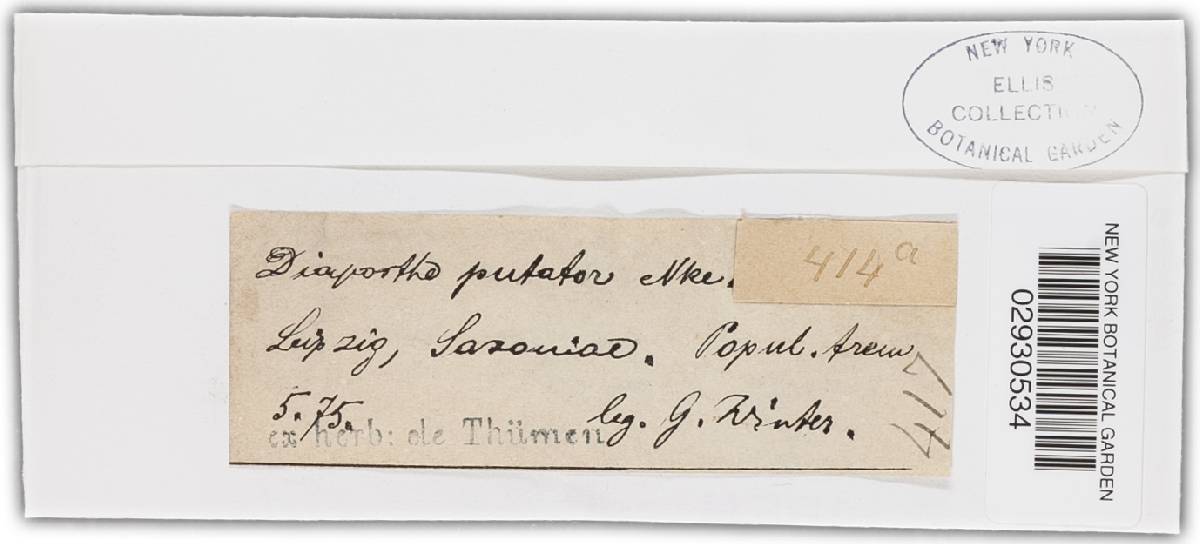 NEW YORK
ELLIS
COLLECTION
BOTANICAL GARDEN
Diaporthe putator Nke.
414a
Leipzig, Saxoniae. Popul. trem
5.75. leg. G. Winter.
ex herb: de Thümen
417
NEW YORK BOTANICAL GARDEN
02930534